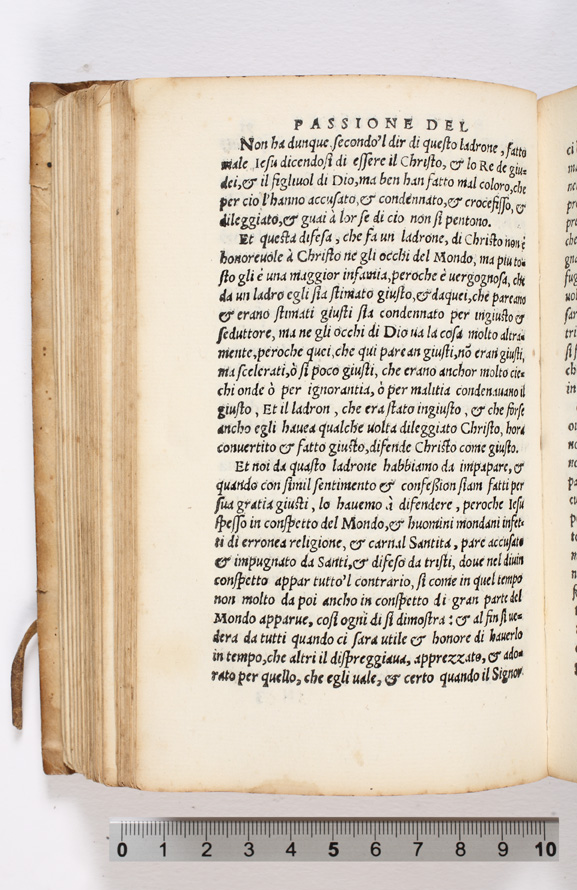 PASSIONE DEL
Non ha dunque, secondo'l dir di questo ladrone, fatto
male Iesu dicendosi di essere il Christo, & lo Re de giu-
dei, & il figliuol di Dio, ma ben han fatto mal coloro, che
per cio l'hanno accusato, & condennato, & crocefisso, &
dileggiato, & guai à lor se di cio non si pentono.
Et questa difesa, che fa un ladrone, di Christo non è
honoreuole à Christo ne gli occhi del Mondo, ma piu to-
sto gli è una maggior infamia, peroche è uergognosa, che
da un ladro egli sia stimato giusto, & da quei, che pareano
& erano stimati giusti sia condennato per ingiusto &
seduttore, ma ne gli occhi di Dio ua la cosa molto altra-
mente, peroche quei, che qui parean giusti, nō eran giusti,
ma scelerati, ò si poco giusti, che erano anchor molto cie-
chi onde ò per ignorantia, ò per malitia condenauano il
giusto, Et il ladron, che era stato ingiusto, & che forse
ancho egli hauea qualche uolta dileggiato Christo, hora
conuertito & fatto giusto, difende Christo come giusto.
Et noi da quasto ladrone habbiamo da impapare, &
quando con simil sentimento & confeßion siam fatti per
sua gratia giusti, lo hauemo à difendere, peroche Iesu
spesso in conspetto del Mondo, & huomini mondani infet-
ti di erronea religione, & carnal Santita, pare accusato
& impugnato da Santi, & difeso da tristi, doue nel diuin
conspetto appar tutto'l contrario, si come in quel tempo
non molto da poi ancho in conspetto di gran parte del
Mondo apparue, cosi ogni di si dimostra : & al fin si ue-
dera da tutti quando ci sara utile & honore di hauerlo
in tempo, che altri il dispreggiaua, apprezzato, & ado-
rato per quello, che egli uale, & certo quando il Signor
0 1 2 3 4 5 6 7 8 9 10